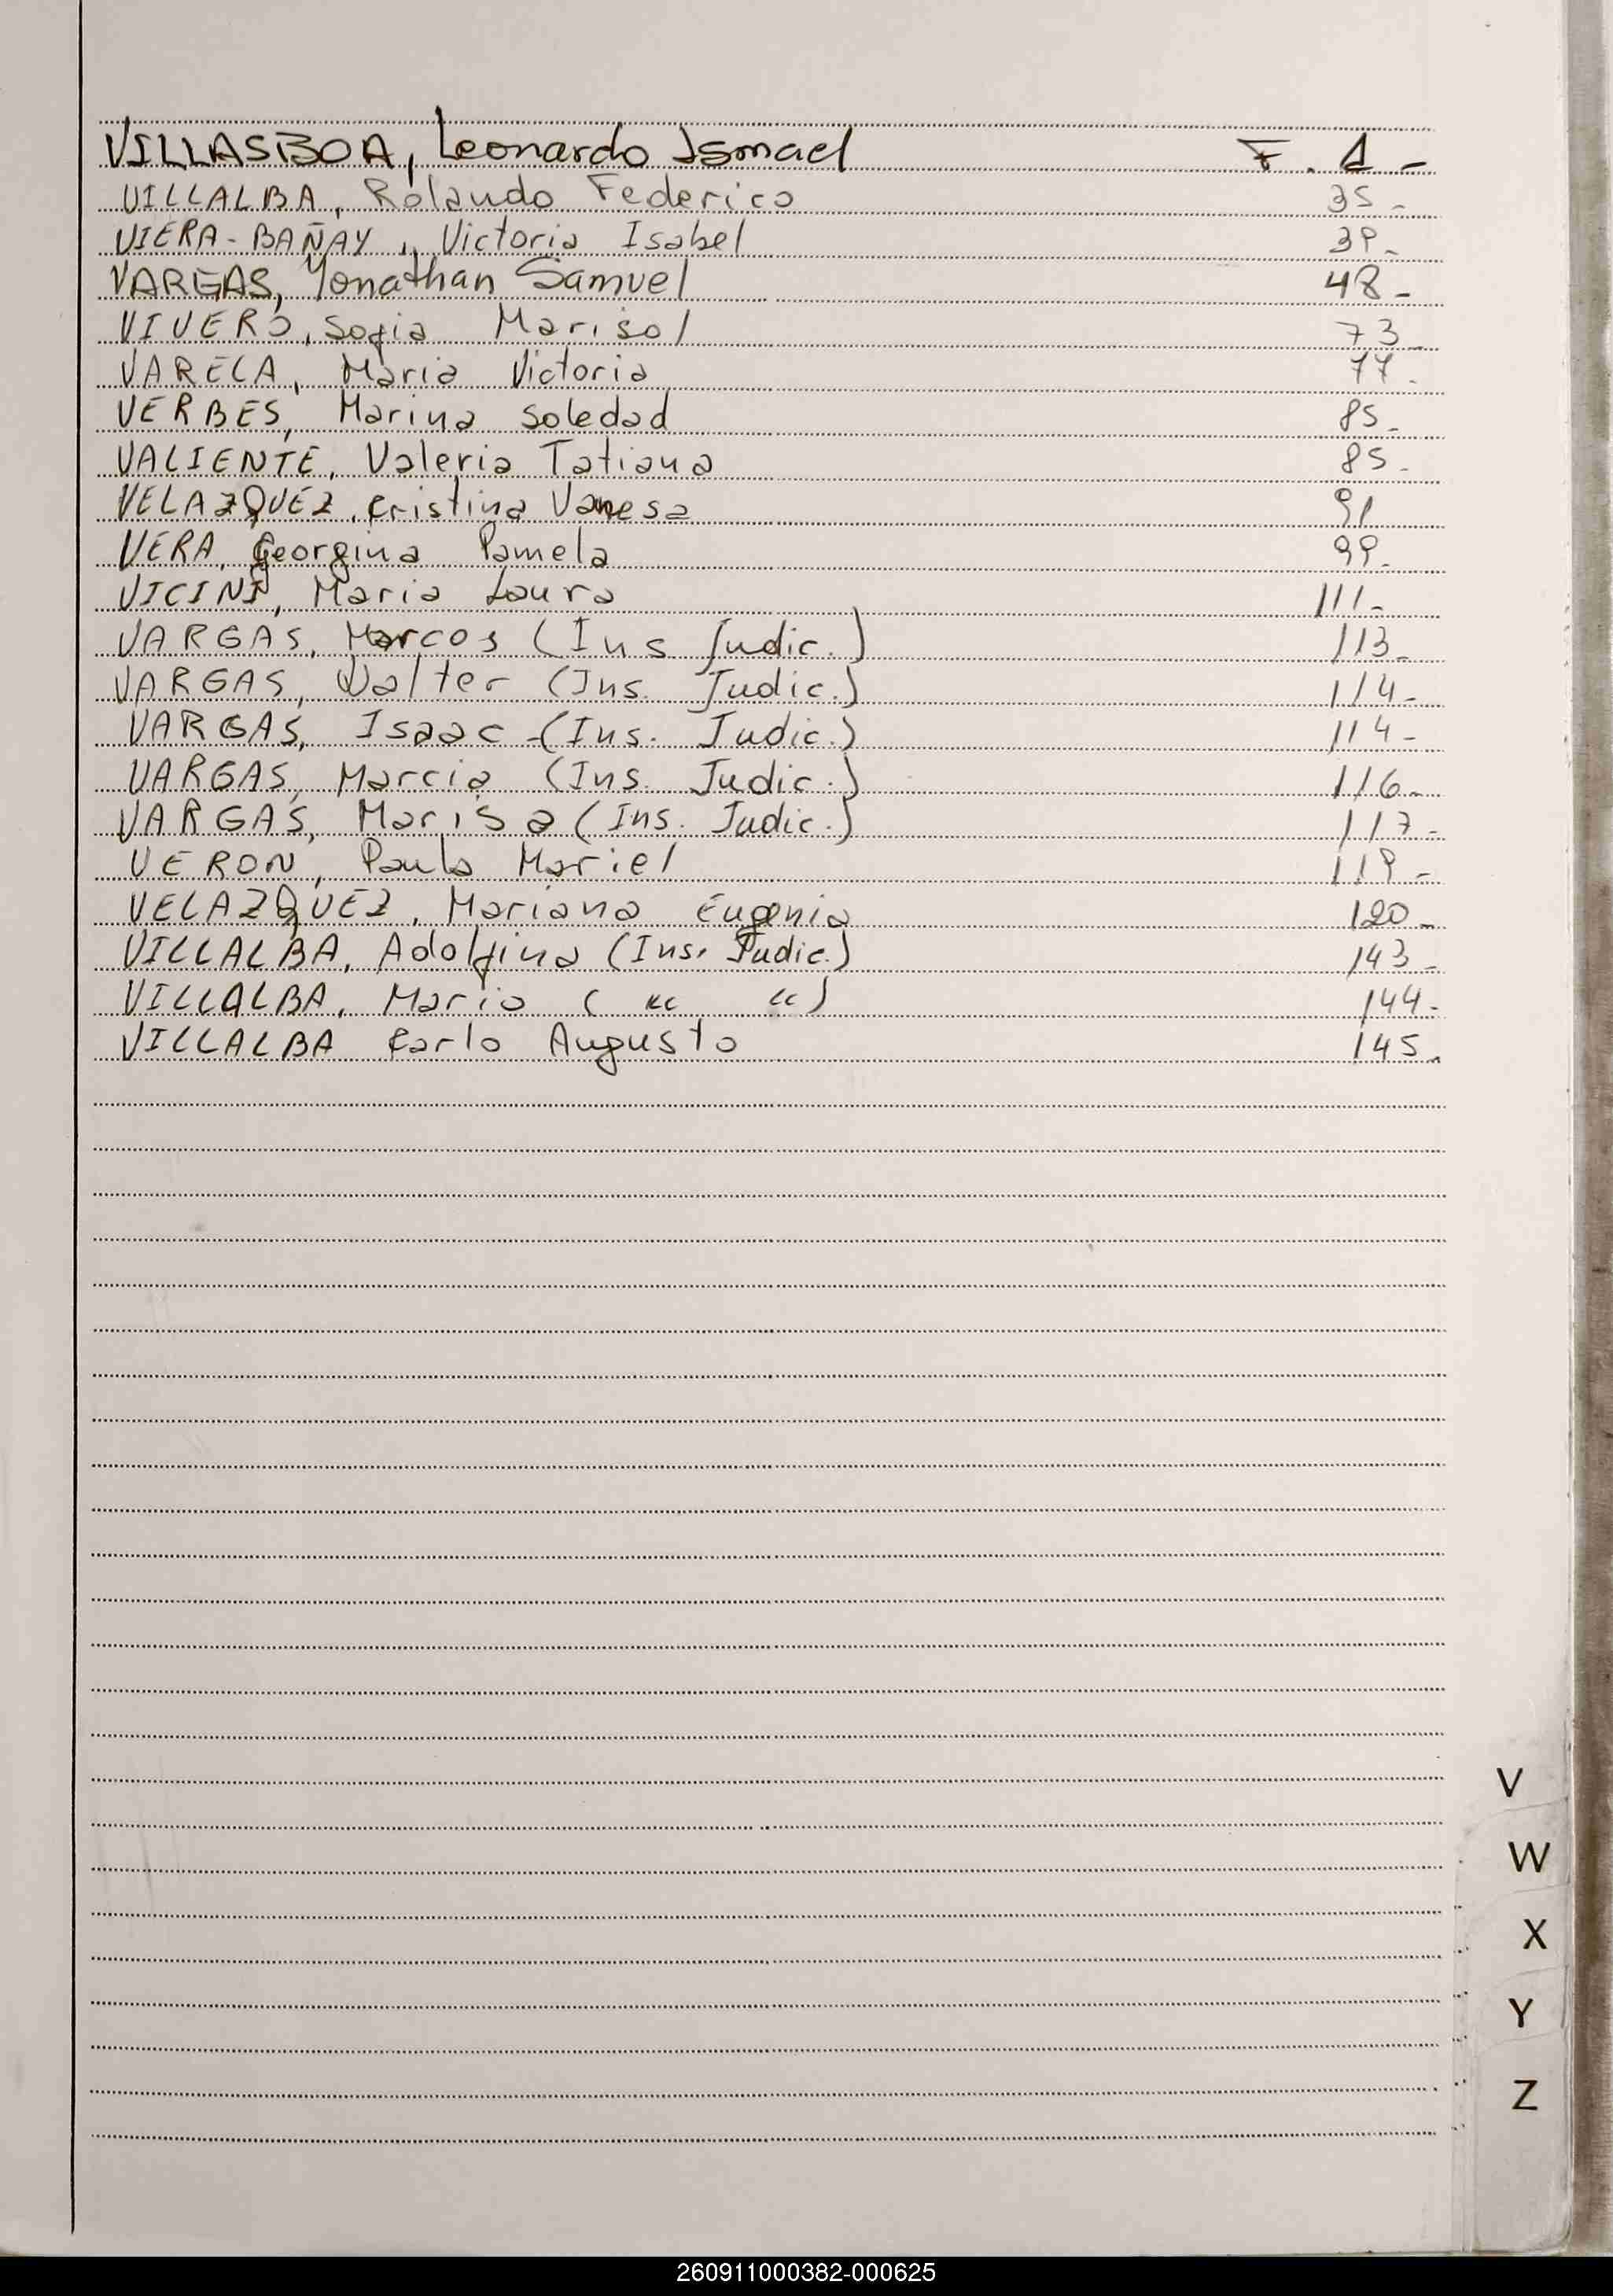 VILLASBOA, Leonardo Ismael F. 1-
VILLALBA, Rolando Federico 35-
VIERA-BAÑAY, Victoria Isabel 39-
VARGAS, Yonathan Samuel 48-
VIVERO, Sofia Marisol 73-
VARELA, Maria Victoria 77-
VERBES, Marina Soledad 85-
VALIENTE, Valeria Tatiana 85-
VELAZQUEZ, Cristina Vanesa 91
VERA, Georgina Pamela 99-
VICINI, Maria Laura 111-
VARGAS, Marcos (Ins Judic.) 113-
VARGAS, Walter (Ins. Judic.) 114-
VARGAS, Isaac -(Ins. Judic.) 114-
VARGAS, Marcia (Ins. Judic.) 116-
VARGAS, Marisa (Ins. Judic.) 117-
VERON, Paula Mariel 119-
VELAZQUEZ, Mariana Eugenia 120-
VILLALBA, Adolfina (Ins. Judic.) 143-
VILLALBA, Mario ( " " ) 144-
VILLALBA Carlo Augusto 145-
V
W
X
Y
Z
260911000382-000625